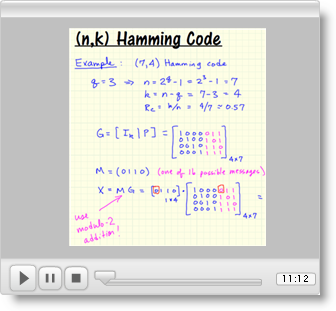 (n,k) Hamming Code
Example: (7,4) Hamming code
q = 3 ⇒ n = 2^q - 1 = 2^3 - 1 = 7
k = n - q = 7 - 3 = 4
Rc = k/n = 4/7 ≈ 0.57
G = [ Ik | P ] = [
1 0 0 0 0 1 1
0 1 0 0 1 0 1
0 0 1 0 1 1 0
0 0 0 1 1 1 1
] 4x7
M = (0 1 1 0) (one of 16 possible messages)
X = M G = [0 1 1 0] 1x4 · [
1 0 0 0 0 1 1
0 1 0 0 1 0 1
0 0 1 0 1 1 0
0 0 0 1 1 1 1
] 4x7 =
use
modulo-2
addition!
11:12